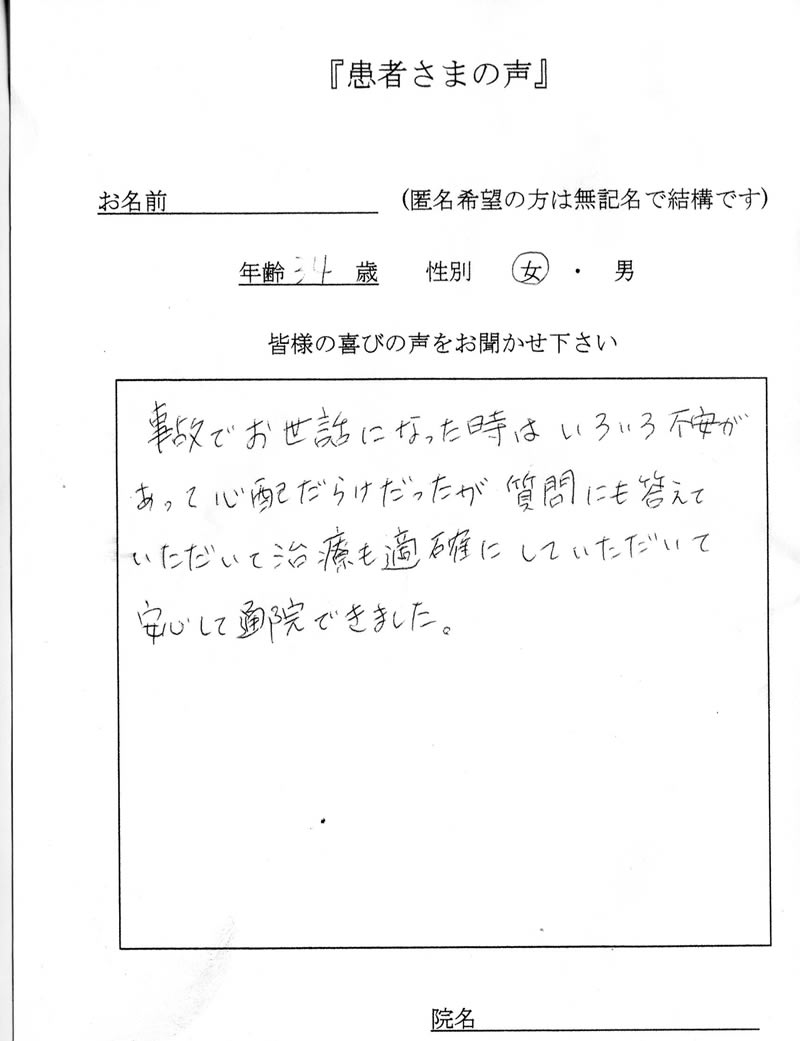 『患者さまの声』
お名前 (匿名希望の方は無記名で結構です)
年齢 34 歳 性別 女 ・ 男
皆様の喜びの声をお聞かせ下さい
事故でお世話になった時は いろいろ不安が
あって心配だらけだったが 質問にも答えて
いただいて治療も適確にしていただいて
安心して通院できました。
院名